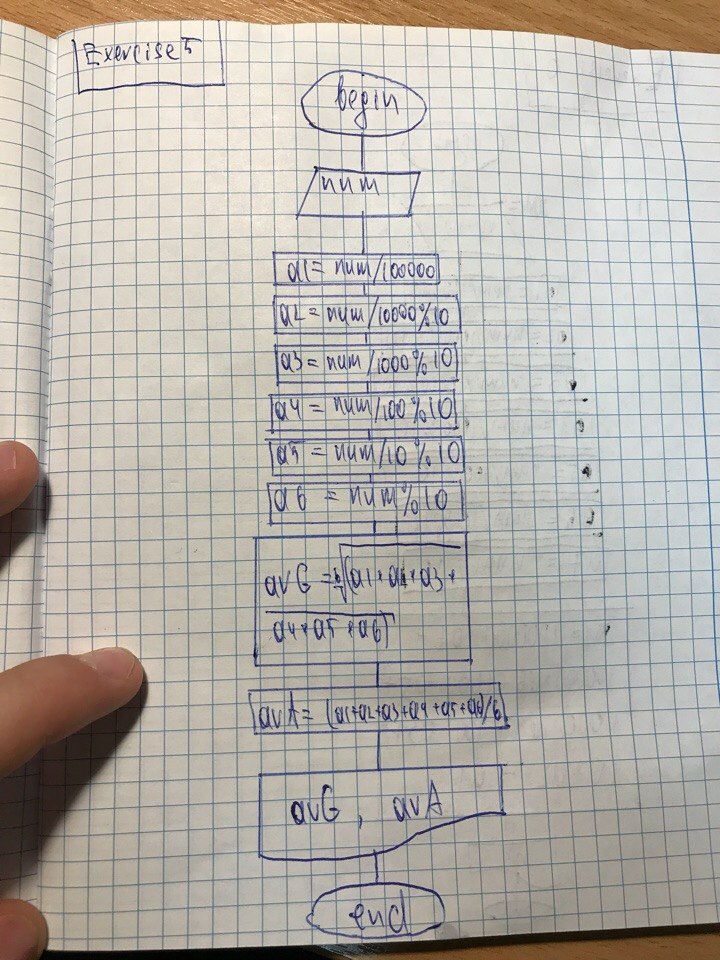 Exercise 5
begin
num
a1 = num/100000
a2 = num/10000%10
a3 = num/1000%10
a4 = num/100%10
a5 = num/10%10
a6 = num%10
avG = ⁶√(a1*a2*a3*
a4*a5*a6)
avA = (a1+a2+a3+a4+a5+a6)/6
avG, avA
end